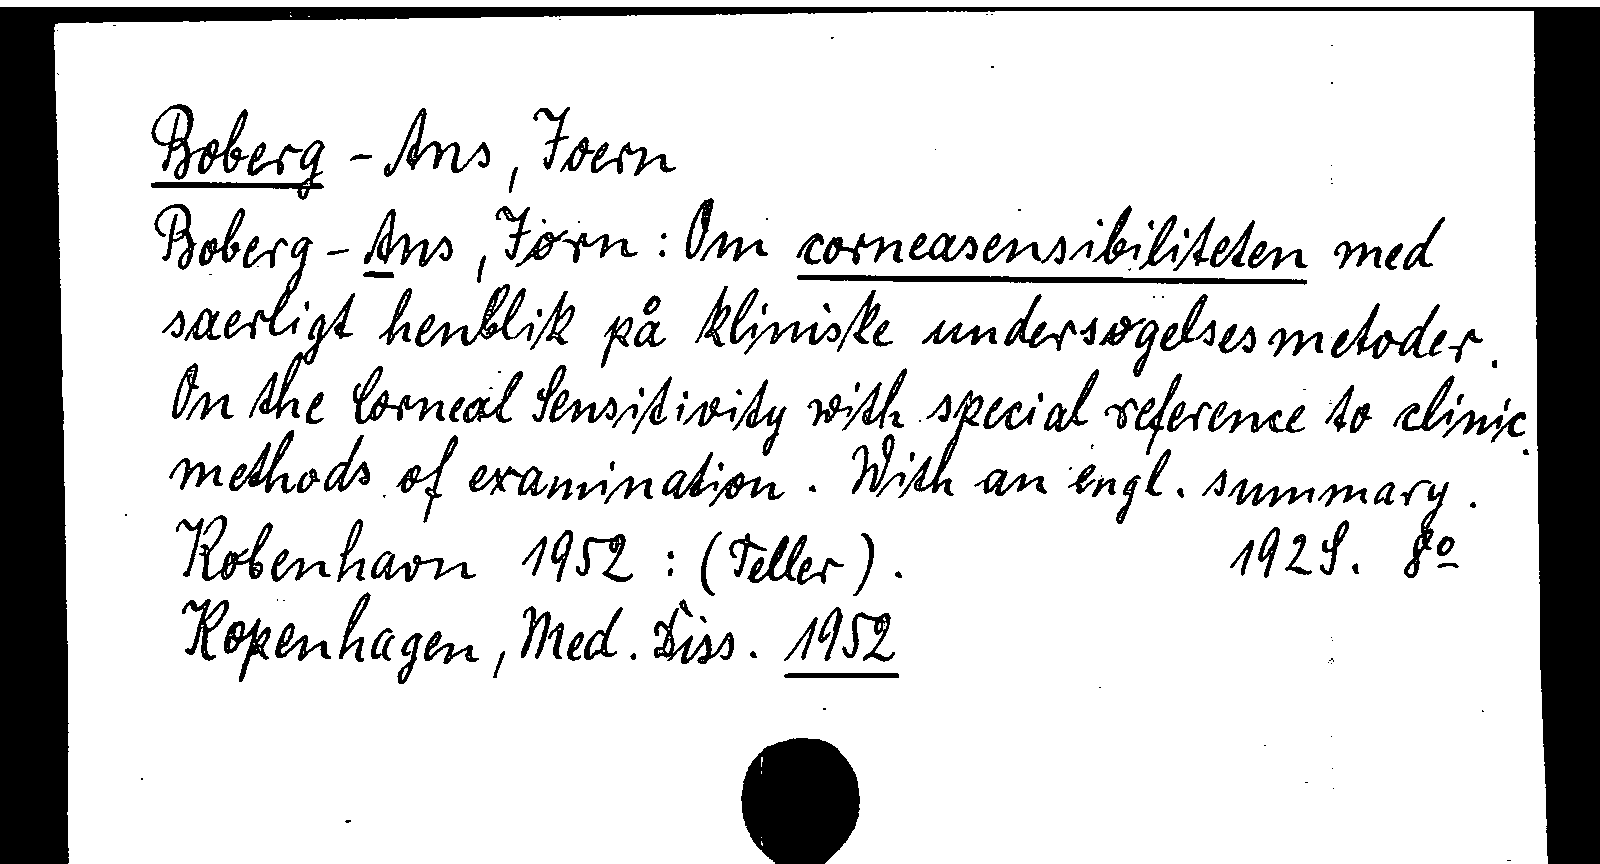 Boberg - Ans, Joern
Boberg - Ans, Jørn: Om corneasensibiliteten med
saerligt henblik på kliniske undersøgelsesmetoder.
On the Corneal Sensitivity with special reference to clinic.
methods of examination. With an engl. summary.
København 1952 : (Teller). 192 S. 8º
Kopenhagen, Med. Diss. 1952